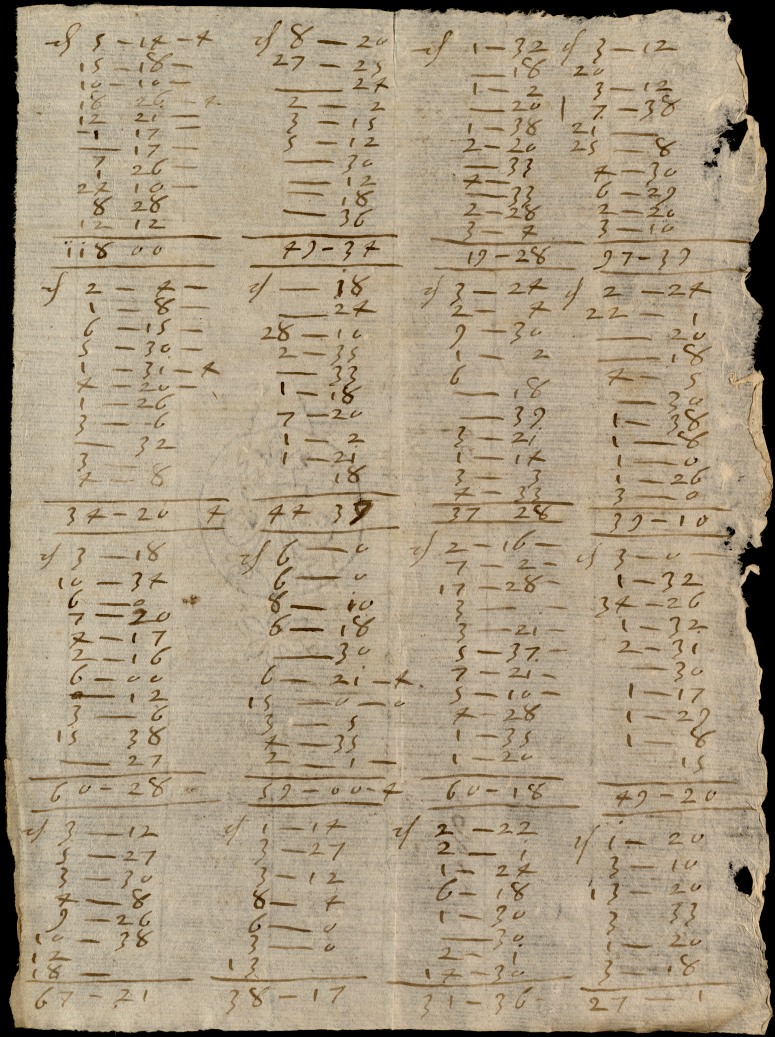 ƒ 5 — 14 — 4
15 — 18 —
10 — 10 —
18 26 — 4
12 21 —
1 17 —
— 17 —
7 26 —
1
24 10 —
8 28
12 12
118 00
ƒ 8 — 20
27 — 25
— 24
2 — 2
3 — 15
5 — 12
— 30
— 12
— 18
— 36
49 — 34
ƒ 1 — 32
— 18
1 — 2
— 20
1 — 38
2 — 20
— 33
4 —
— 33
2 — 28
3 — 4
19 — 28
ƒ 3 — 12
20
3 — 12
7 — 38
21 —
25 — 8
4 — 30
6 — 29
2 — 20
3 — 10
97 — 39
ƒ 2 — 4 —
1 — 8 —
6 — 15 —
5 — 30 —
1 — 31 — 4
4 — 20 —
1 — 26
3 — 6
— 32
3
4 — 8
34 — 20 4
ƒ — 18
— 24
28 — 10
2 — 35
— 33
1 — 18
7 — 20
1 — 2
1 — 21
18
44 39
ƒ 3 — 24
2 — 4
9 — 30
1 — 2
6
— 18
— 39
3 — 21
1 — 14
3 — 3
4 — 33
37 28
ƒ 2 — 24
22 — 1
— 20
— 18
4 — 5
— 30
1 — 38
1 — 8
1 — 0
1 — 26
3 — 0
39 — 10
ƒ 3 — 18
10 — 34
6 — 0
7 — 20
4 — 17
2 — 16
6 — 00
0 — 12
3 — 6
15 38
— 27
60 — 28
ƒ 6 — 0
6 — 0
8 — 10
6 — 18
— 30
6 — 21 — 4
15 — 0 — 0
3 — 5
4 — 35
2 — 1 —
59 — 00 — 4
ƒ 2 — 16 —
7 — 2 —
17 — 28 —
3 — —
3 — 21 —
5 — 37 —
7 — 21 —
5 — 10 —
4 — 28
1 — 35
1 — 20
60 — 18
ƒ 3 — 0 —
1 — 32
34 — 26
1 — 32
2 — 31
— 30
1 — 17
1 — 29
1 — 8
15
49 — 20
ƒ 3 — 12
5 — 27
3 — 30
4 — 8
9 — 26
10 — 38
12
18 —
67 — 21
ƒ 1 — 14
3 — 27
3 — 12
8 — 4
6 — 0
3 — 0
13
38 — 17
ƒ 2 — 22
2 — 1
1 — 24
6 — 18
1 — 30
— 30
2 — 1
14 — 30
31 — 36
ƒ 1 — 20
3 — 10
13 — 20
3 33
1 — 20
3 — 18
27 — 1